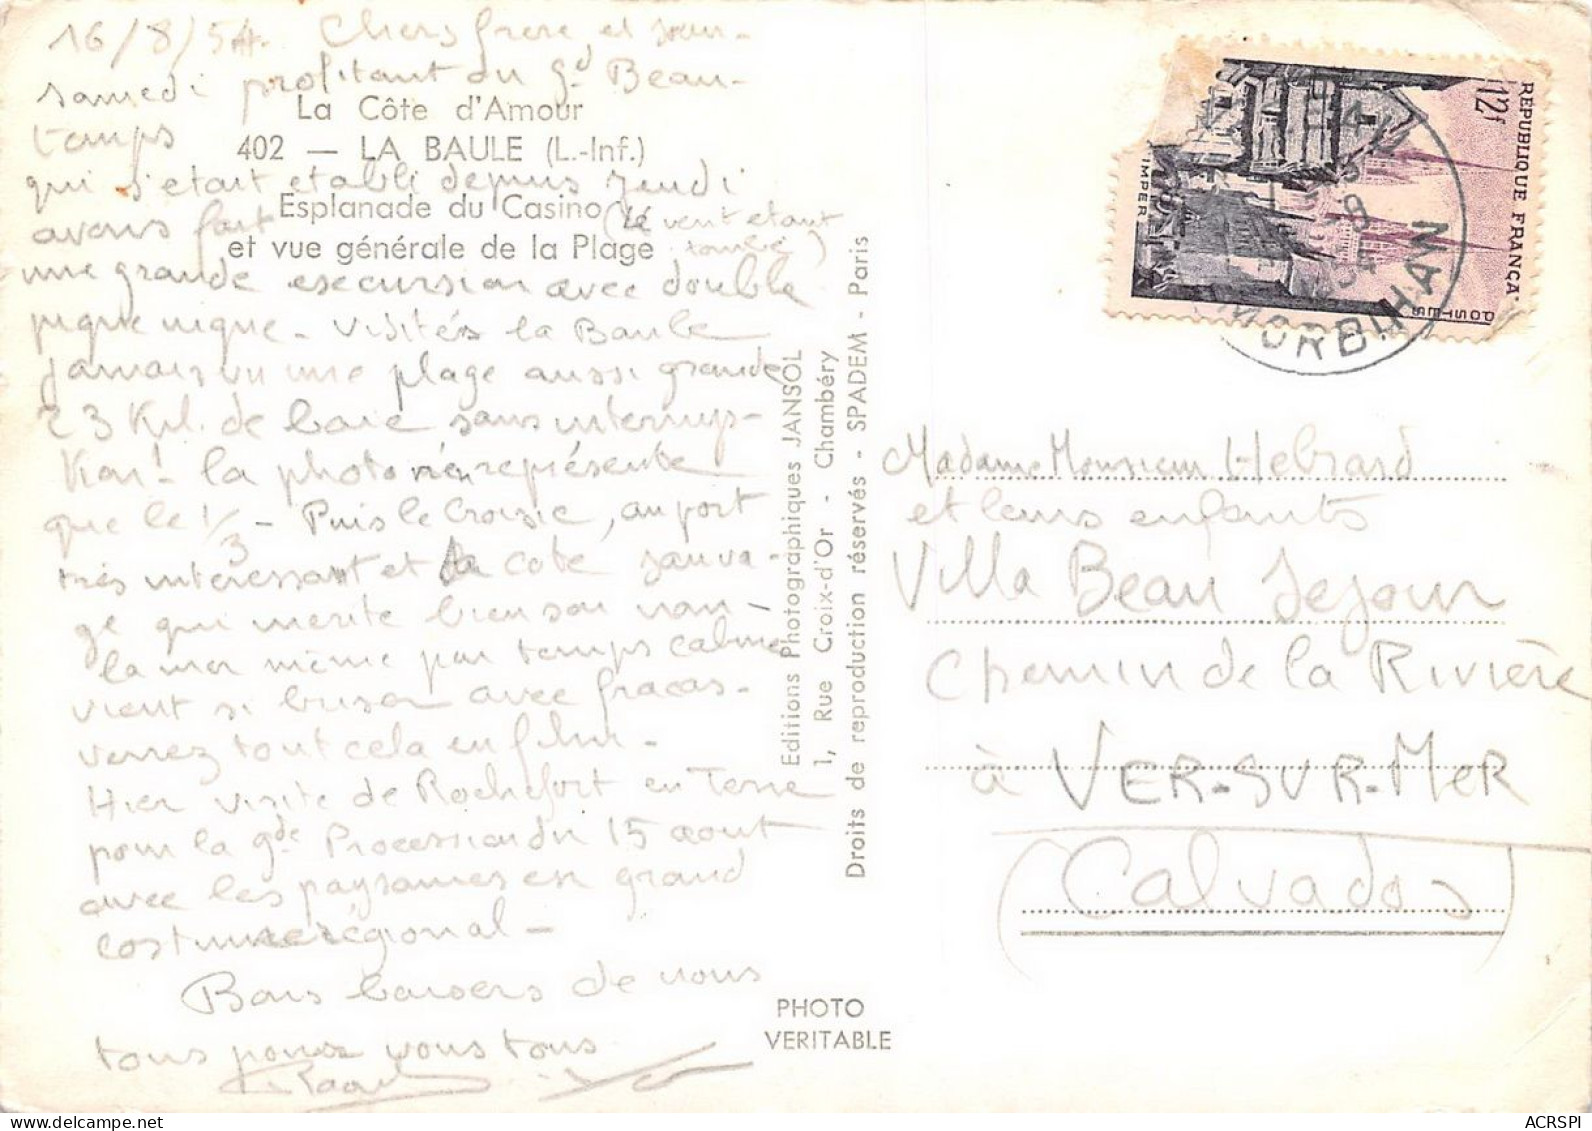 16/8/54. Chers frere et sœur-
samedi profitant du gd Beau-
temps
qui s'etait etabli depuis Jeudi
avons fait (le vent etant
tombé)
une grande excursion avec double
pique nique - visités la Baule
jamais vu une plage aussi grande
23 Kil. de baie sans interrup-
tion! la photo n'en représente
que le 1/3 - Puis le Croisic, au port
très interessant et la cote sauva-
ge qui merite bien son nom -
la mer même par temps calme
vient si briser avec fracas -
verrez tout cela en film -
Hier visite de Rochefort en Terre
pour la gde Procession du 15 aout
avec les paysannes en grand
costume régional -
Bons baisers de nous
tous pour vous tous
La Côte d'Amour
402 — LA BAULE (L.-Inf.)
Esplanade du Casino
et vue générale de la Plage
Editions Photographiques JANSOL
1, Rue Croix-d'Or - Chambéry
Droits de reproduction réservés - SPADEM - Paris
PHOTO
VERITABLE
REPUBLIQUE FRANÇA
12f
POSTES
QUIMPER
MORBIHAN
Madame Monsieur Hebrard
et leurs enfants
Villa Beau Sejour
Chemin de la Rivière
à VER-SUR-MER
(Calvados)
ACRSPI